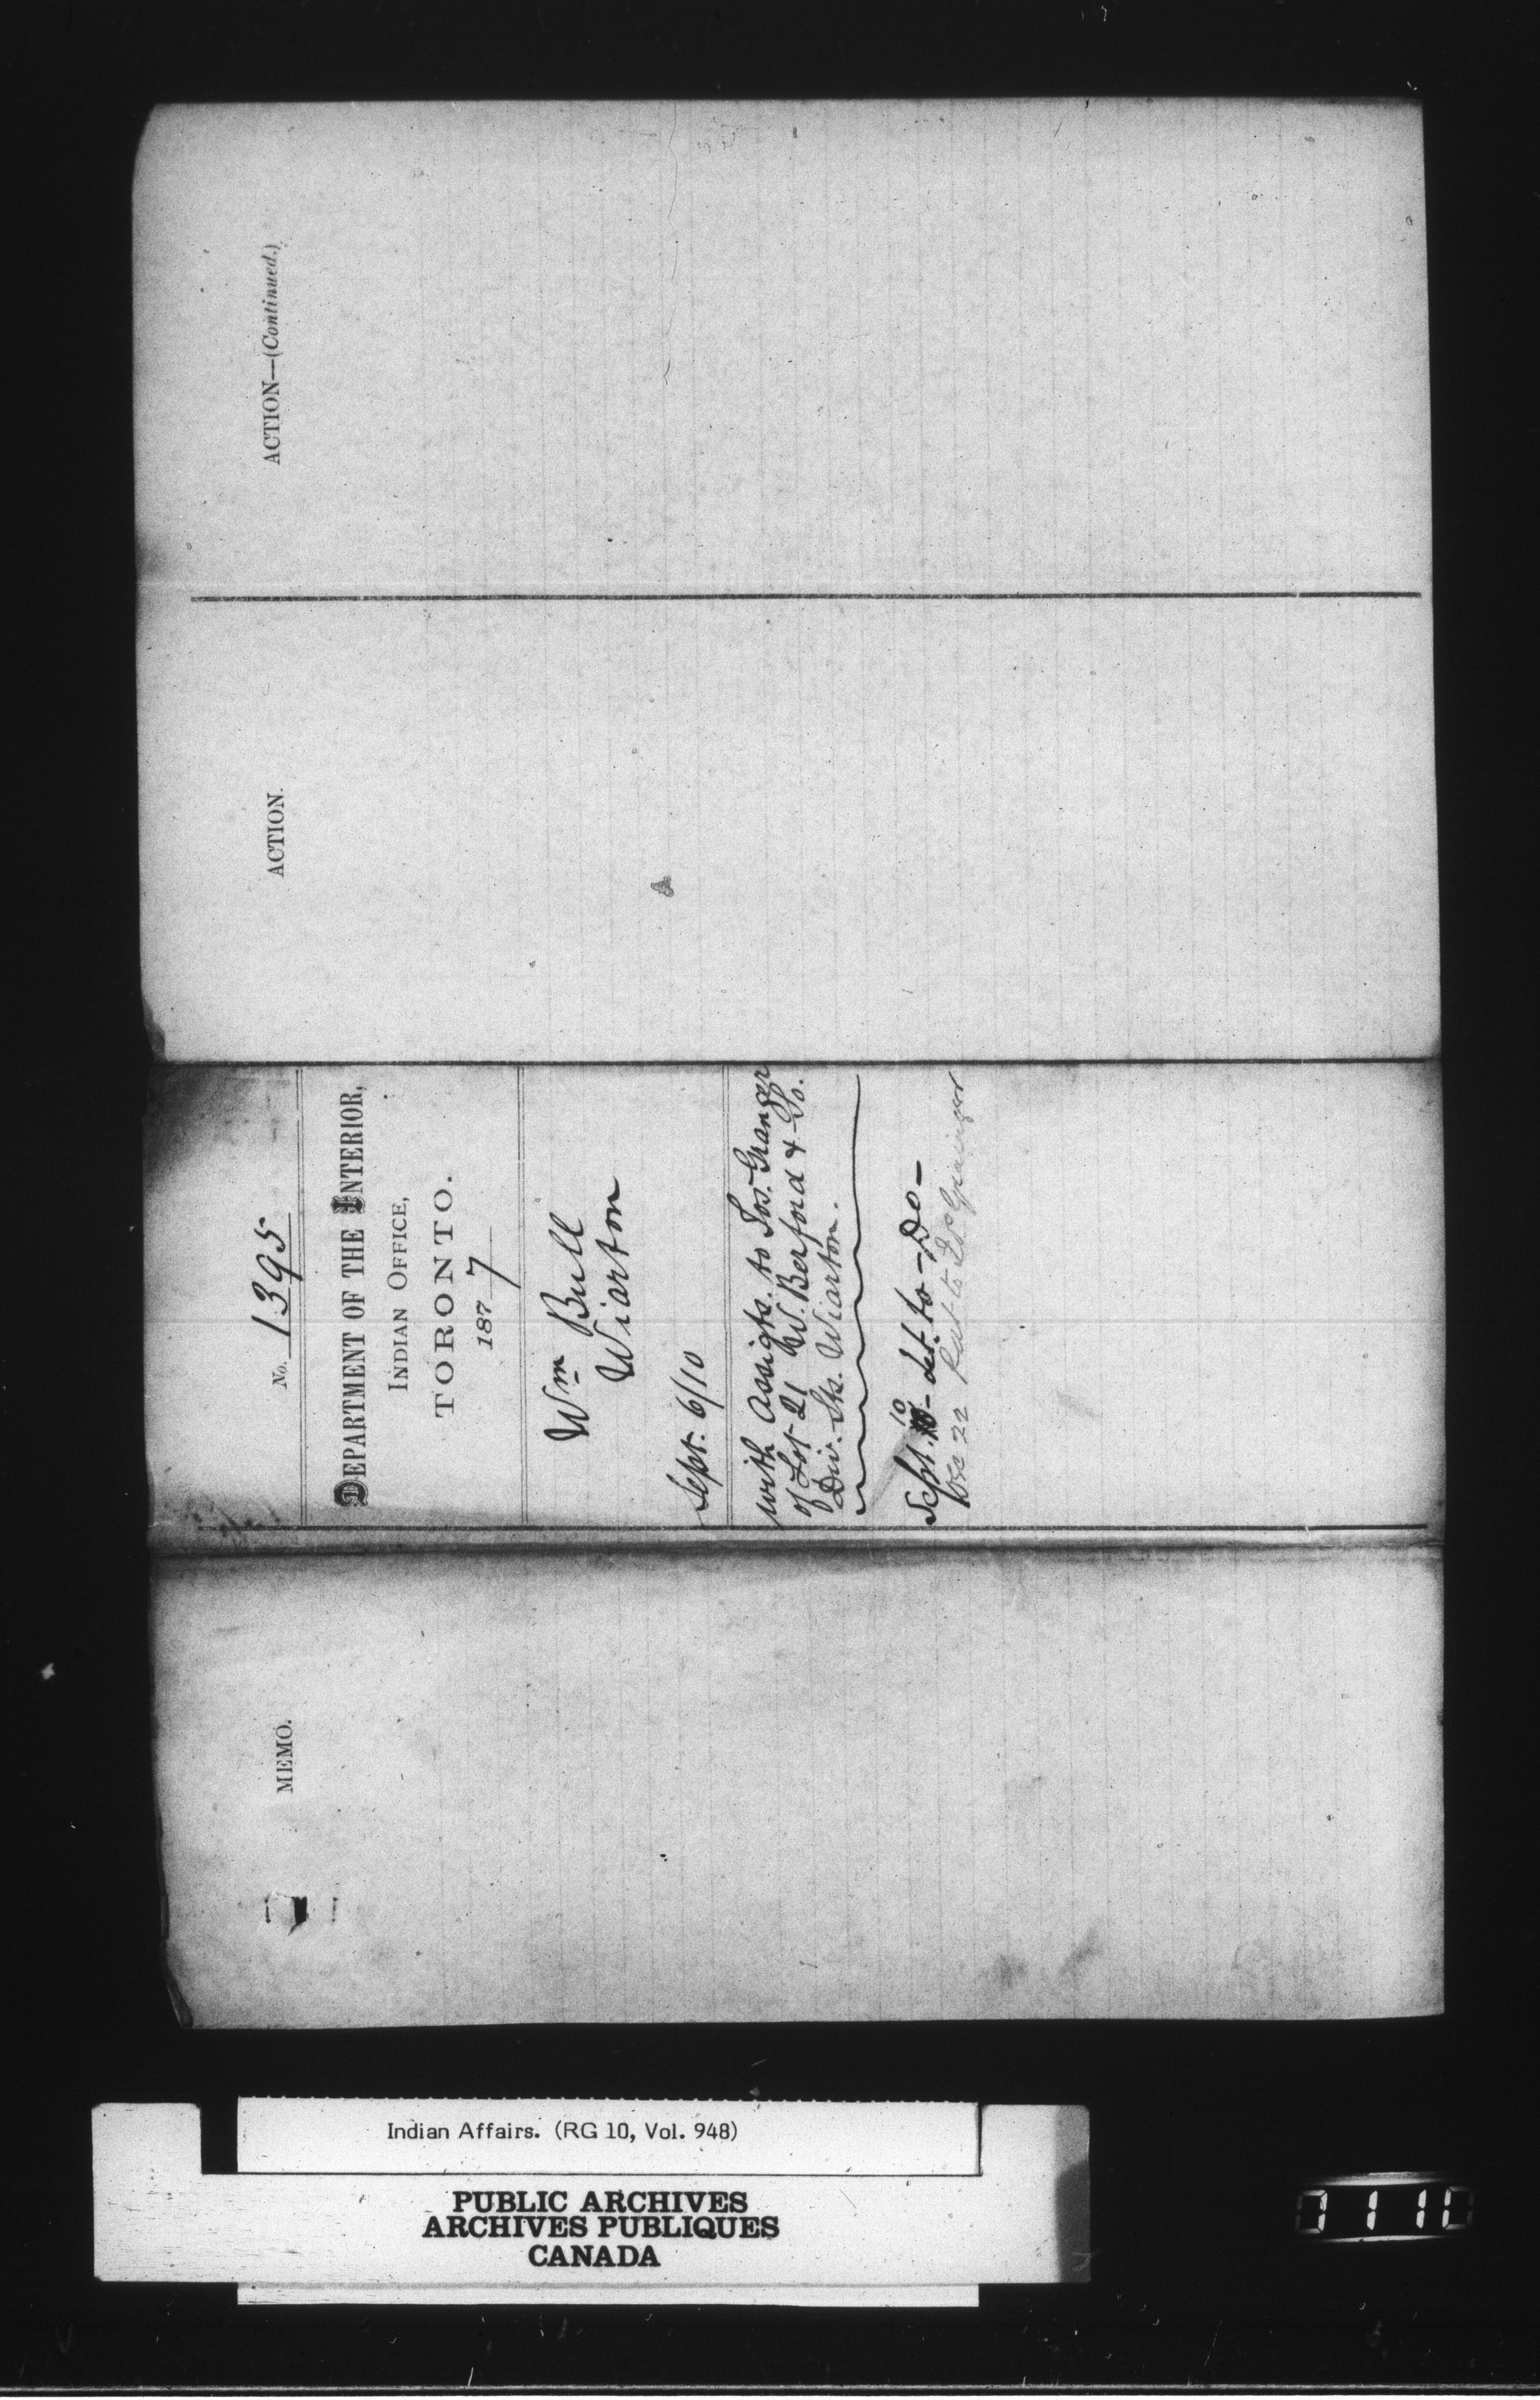 ACTION—(Continued.)
ACTION.
No. 1395
DEPARTMENT OF THE INTERIOR,
INDIAN OFFICE,
TORONTO.
1877
Wm Bull
Wiarton
Sept. 6/10
with Assigts. to Jos. Granger
of Lot 21 W. Berford & So.
Div. Sts. Wiarton.
Sept. 10 - let. to - Do -
Dec 22 Pat to Jos Grainger
MEMO.
Indian Affairs. (RG 10, Vol. 948)
PUBLIC ARCHIVES
ARCHIVES PUBLIQUES
CANADA